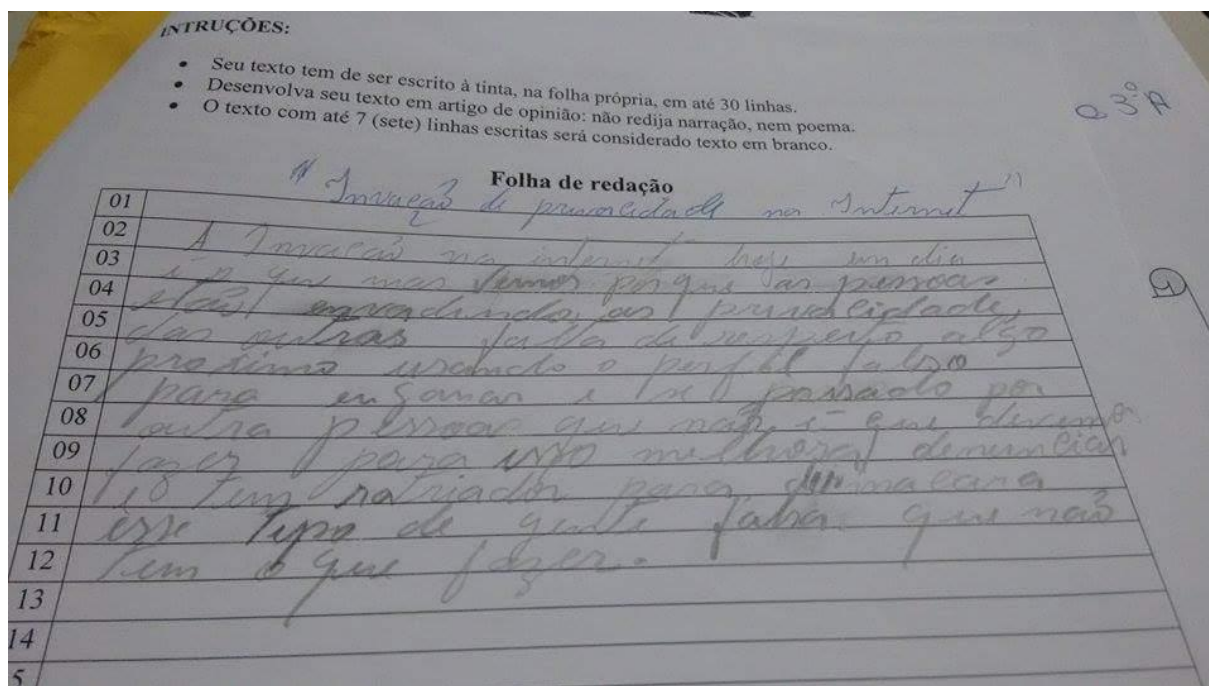 INTRUÇÕES:
• Seu texto tem de ser escrito à tinta, na folha própria, em até 30 linhas.
• Desenvolva seu texto em artigo de opinião: não redija narração, nem poema.
• O texto com até 7 (sete) linhas escritas será considerado texto em branco.
3º A
Folha de redação
01 "Invação de privalidade na Internet"
02 A Invacão na internet hoje em dia
03 é o que mas vemos porque as pessoas
04 estão envadindo as privalidade,
05 das outras falta de respeito algo
06 proximo usando o perfil falso
07 para enganar e se passado por
08 outra pessoas que não é que devemos
09 fazer para isso melhora denunciar
10 tem ratriador para
11 esse tipo de gente falsa que não
12 tem o que fazer.
13
14
5